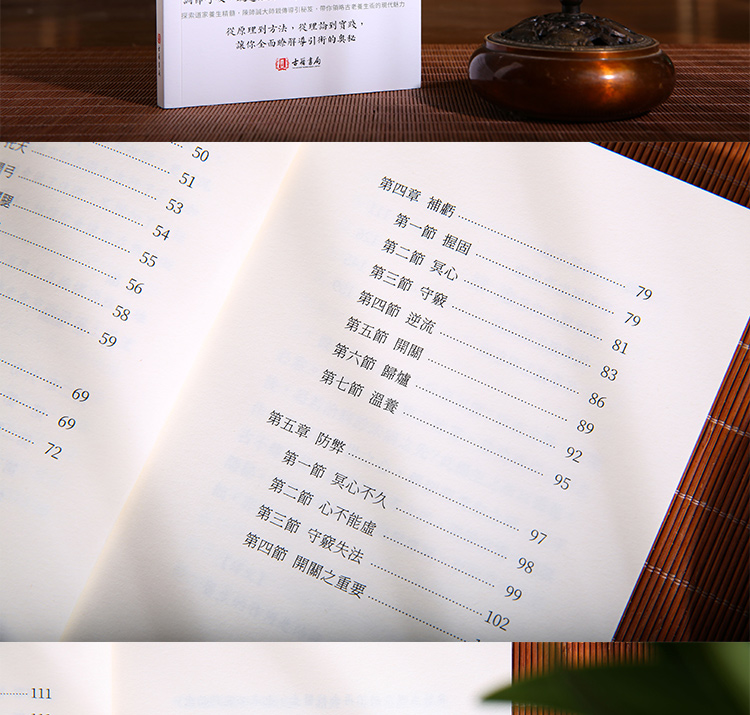 探索道家養生精髓，陳師誠大師親傳導引秘笈，帶你領略古老養生術的現代魅力
從原理到方法，從理論到實踐，
讓你全面瞭解導引術的奧秘
古籍書局
50
弓 51
腿 53
54
55
56
58
59
69
69
72
第四章 補虧 79
第一節 握固 79
第二節 冥心 81
第三節 守竅 83
第四節 逆流 86
第五節 開關 89
第六節 歸爐 92
第七節 溫養 95
第五章 防弊 97
第一節 冥心不久 98
第二節 心不能虛 99
第三節 守竅失法 102
第四節 開關之重要
111